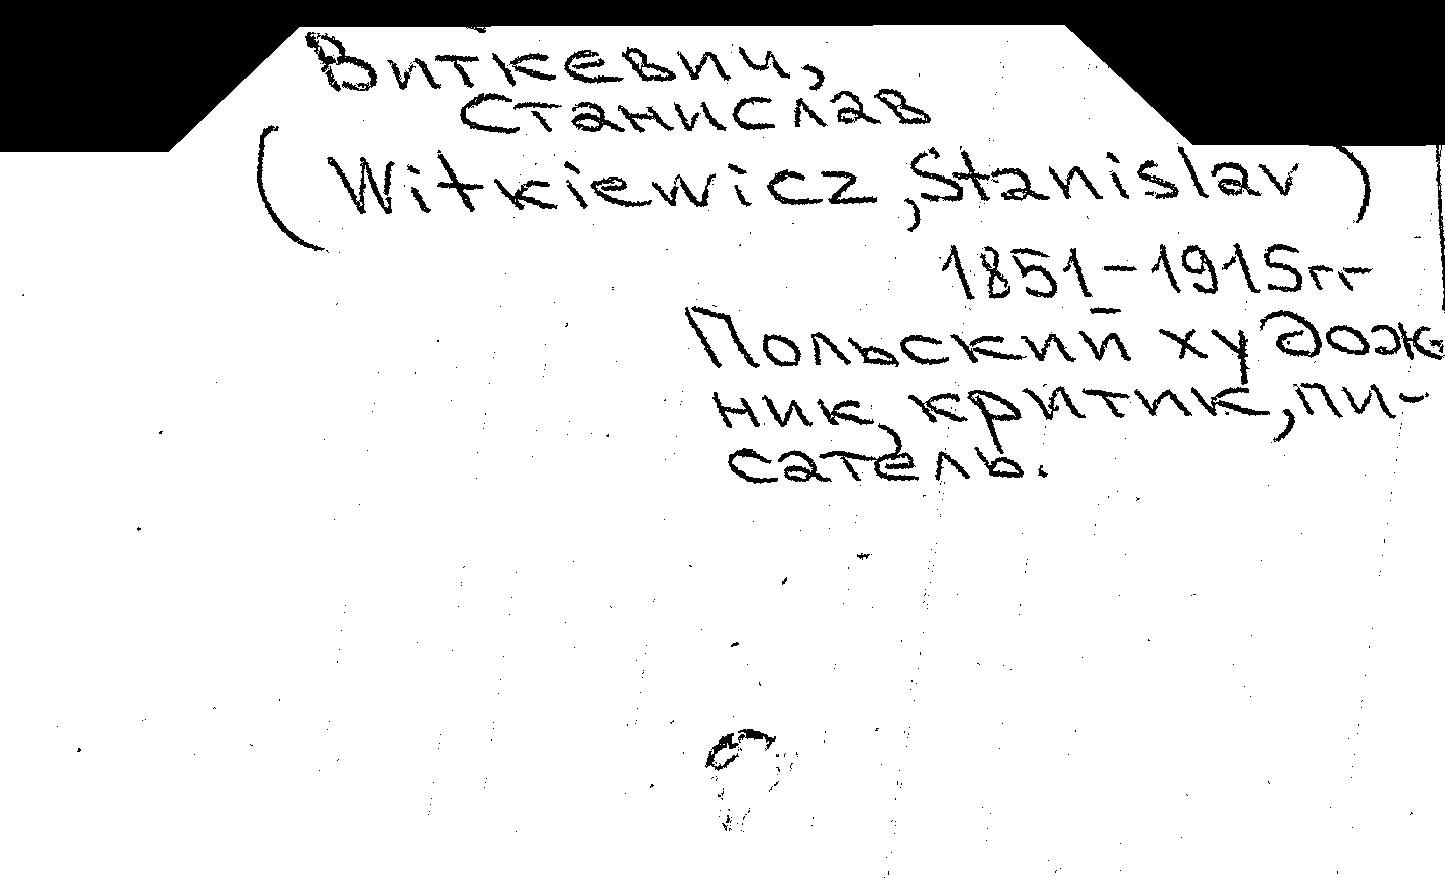 Виткевич,
Станислав
(Witkiewicz, Stanislav)
1851-1915гг
Польский худож
ник, критик, пи-
сатель.